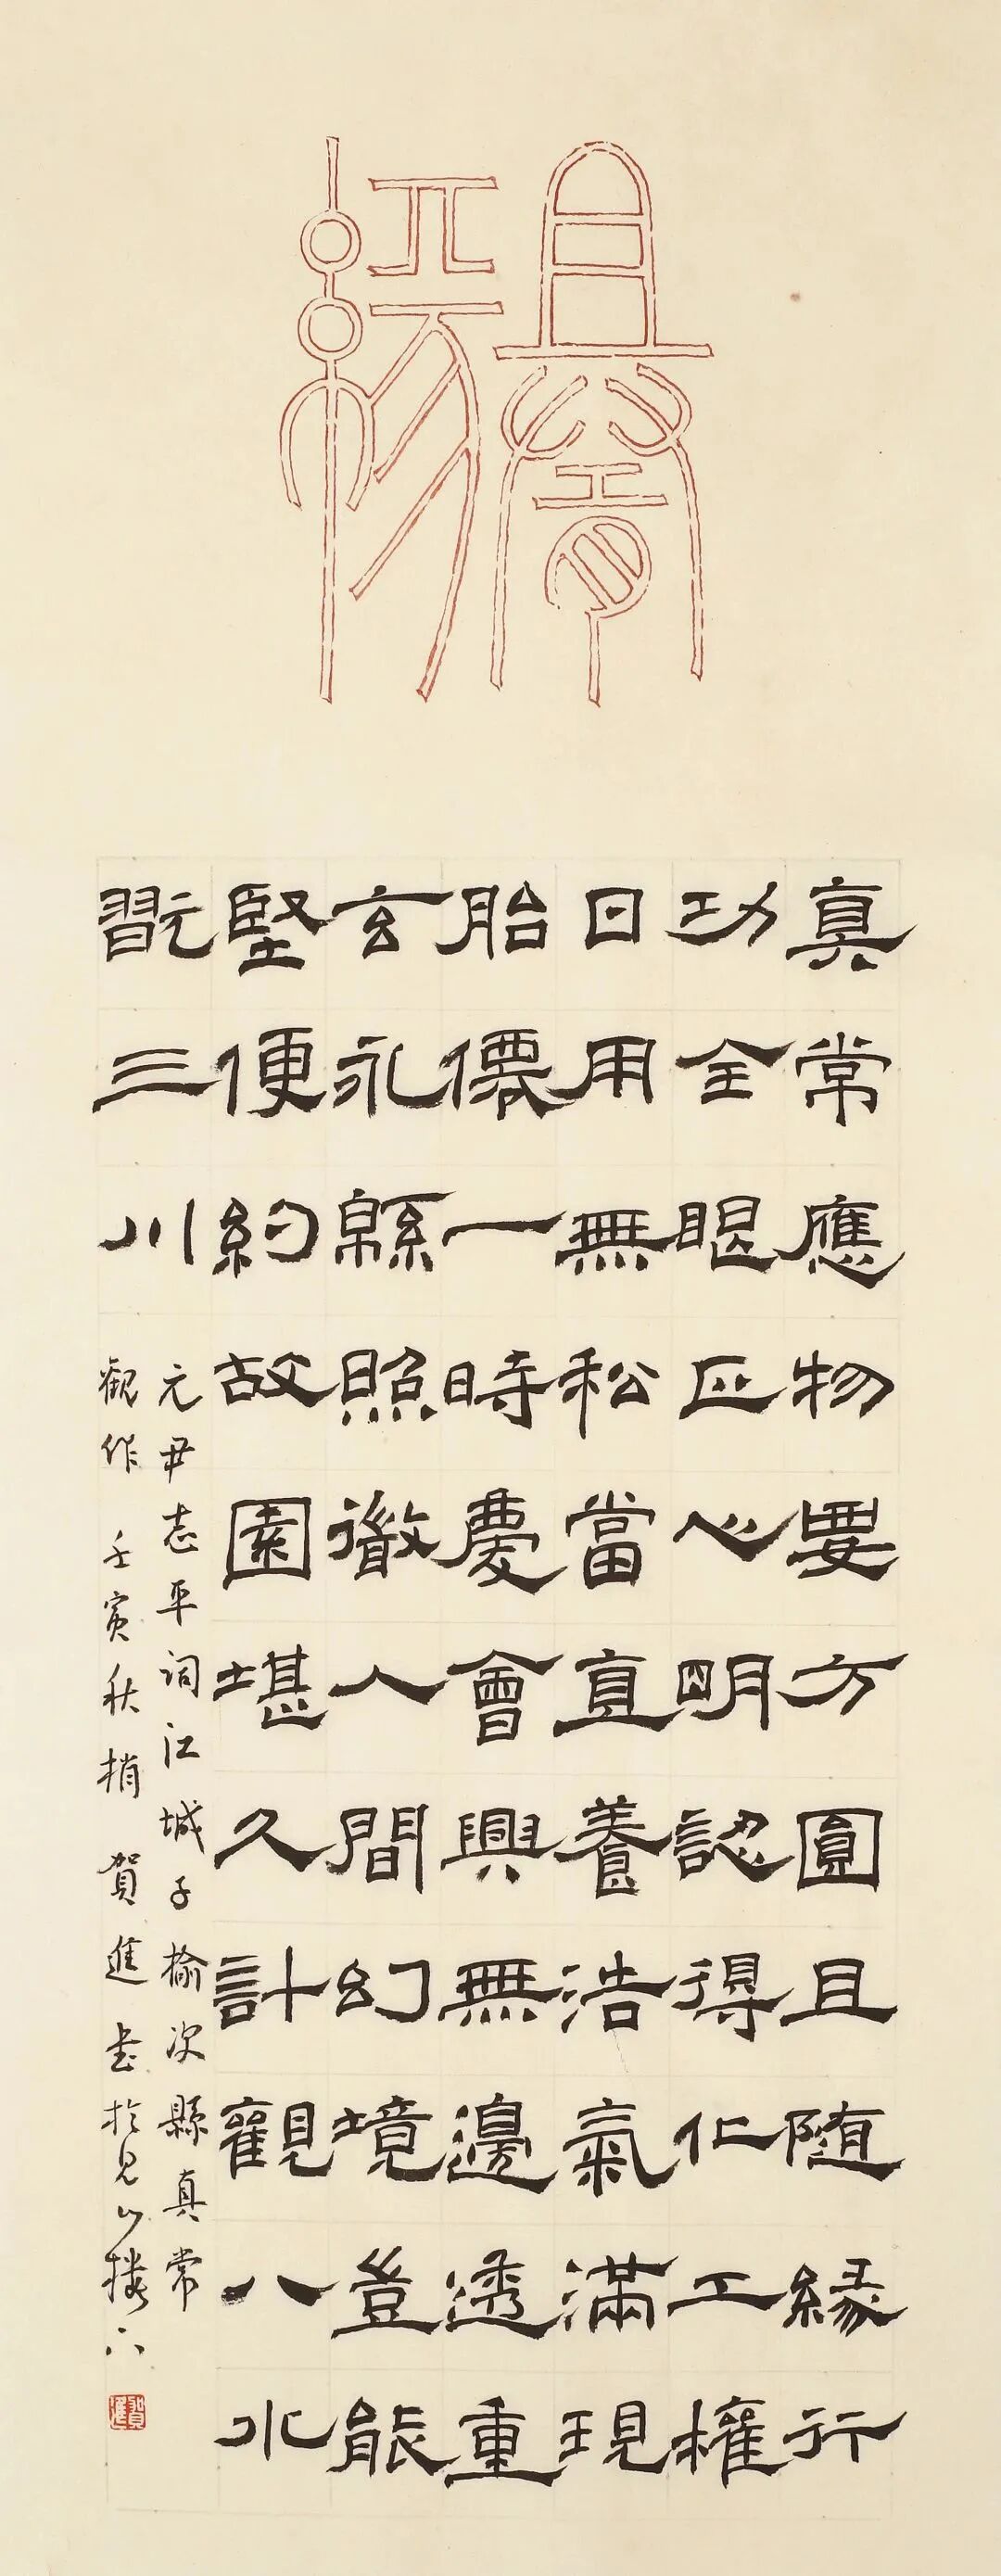 真常應物要方圓且随緣行
功全眼正心明認得化工權
日用無私當直養浩氣滿現
胎僊一時慶會興無邊透重
玄永緜照徹人間幻境豈能
堅便約故園堪久計觀八水
翫三川
元尹志平詞江城子榆次縣真常
觀作 壬寅秋梢 賀進書於見山樓下
賀進